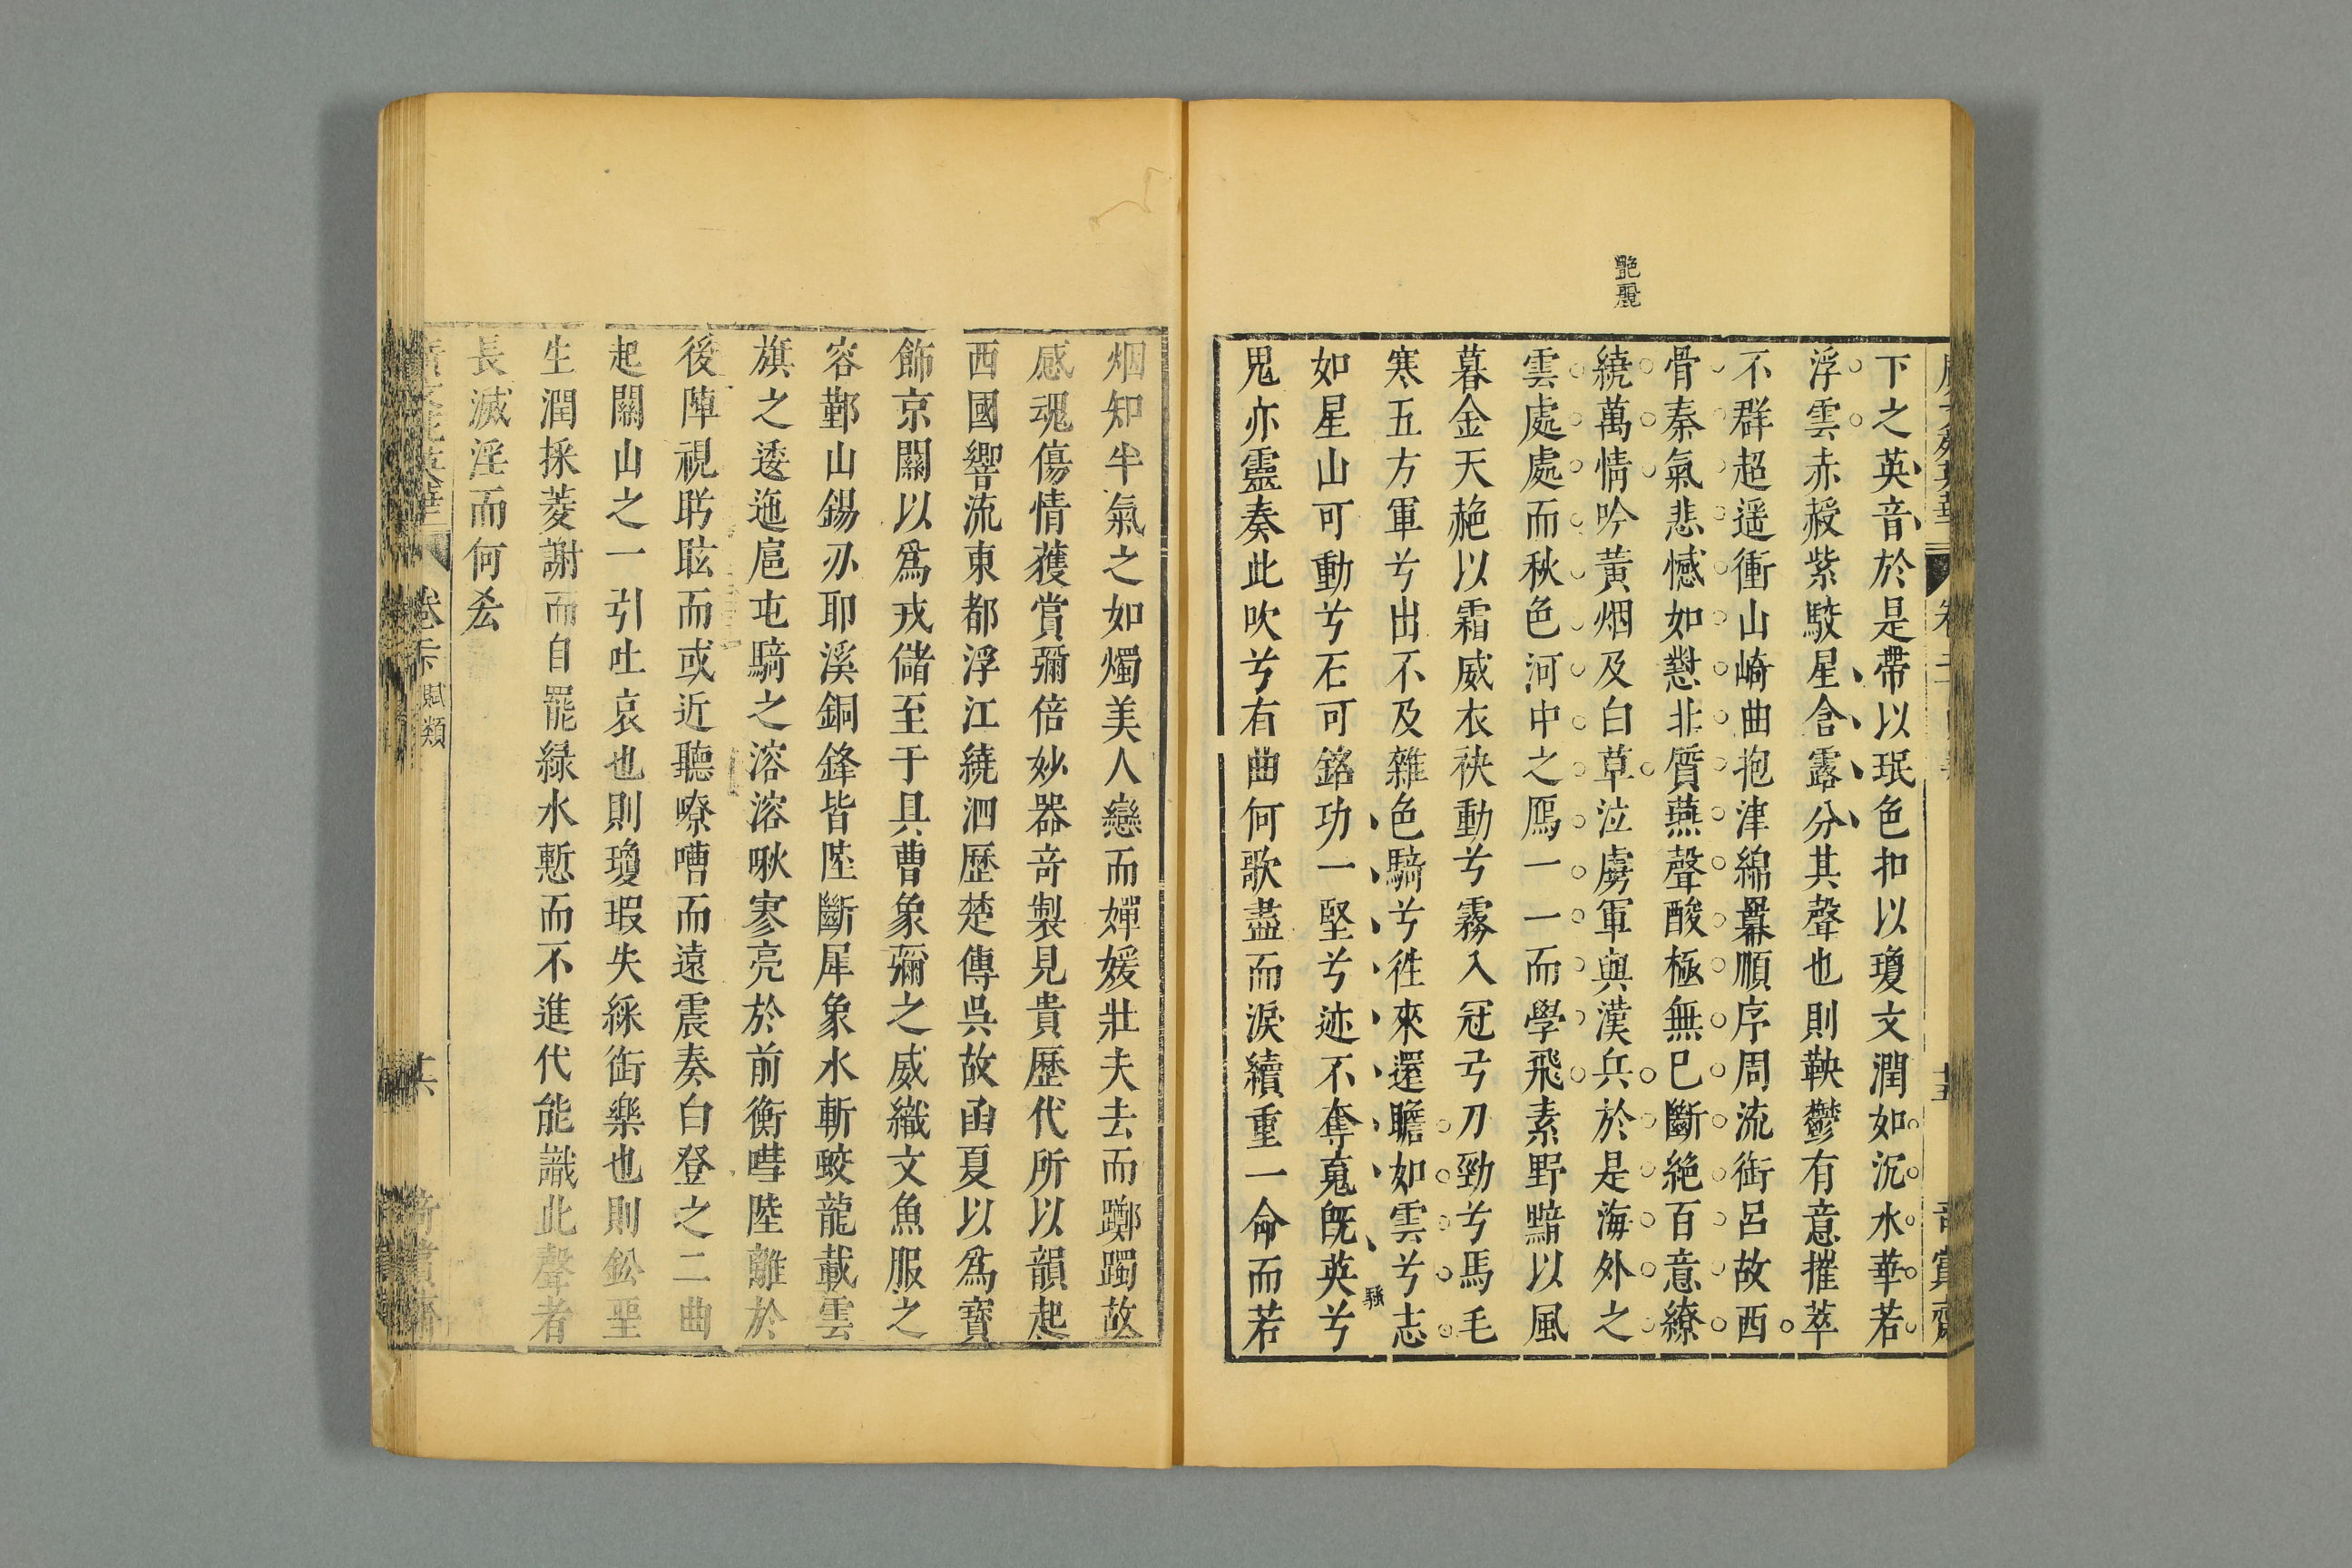 艶麗
下之英音於是帶以珉色扣以瓊文潤如沉水華若
浮雲赤綬紫駮星含露分其聲也則鞅鬱有意摧萃
不群超遥衝山崎曲抱津綿羃順序周流銜呂故西
骨秦氣悲憾如懟北質燕聲酸極無已斷絶百意繚
繞萬情吟黃烟及白草泣虜軍與漢兵於是海外之
雲處處而秋色河中之鴈一一而學飛素野黯以風
暮金天赩以霜威衣袂動兮霧入冠弓刀勁兮馬毛
寒五方軍兮出不及雜色騎兮徃來還瞻如雲兮志
如星山可動兮石可銘功一堅兮迹不奪䰟既英兮
鬼亦靈奏此吹兮有曲何歌盡而淚續重一命而若
騷
烟知半氣之如燭美人戀而嬋媛壯夫去而躑躅故
感魂傷情獲賞彌倍妙器奇製見貴歷代所以韻起
西國響流東都浮江繞泗歷楚傳吳故函夏以爲寶
飾京關以爲戎儲至于具曹象彌之威織文魚服之
容鄞山錫刅耶溪銅鋒皆陸斷犀象水斬蛟龍載雲
旗之逶迤扈屯騎之溶溶啾寥亮於前衡嘒陸離於
後陣視眄眩而或近聽嘹嘈而遠震奏白登之二曲
起關山之一引吐哀也則瓊瑕失綵銜樂也則鈆堊
生潤採菱謝而自罷緑水慙而不進代能識此聲者
長滅淫而何𠫤
賦類